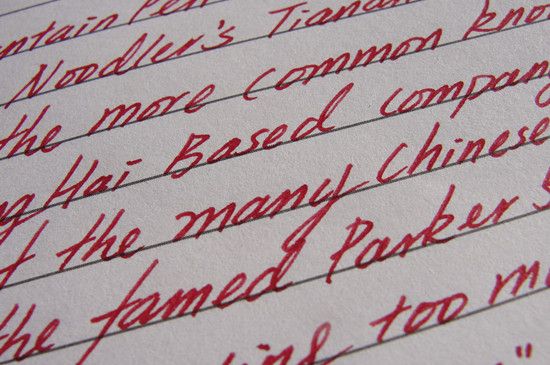 Pen
Noodler's
the more common
Hai Based company
the many Chinese
the famed Parker
too